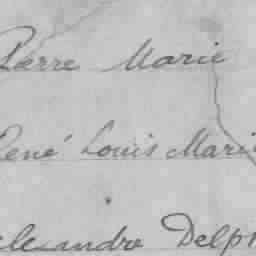 Pierre Marie
René Louis Marie
Alexandre Delph